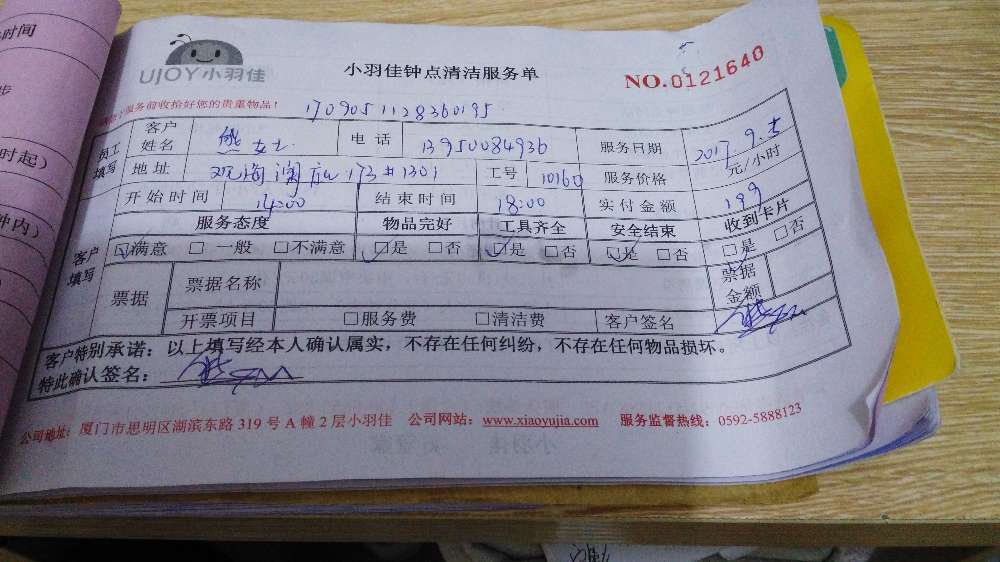 时间
步
时起）
钟内）
UJOY小羽佳
小羽佳钟点清洁服务单
NO.0121640
服务前收拾好您的贵重物品！
1709051128360195
员工填写
客户姓名 熊女士 电话 13950084936 服务日期 2017 9.5
地址 观海澜庭173#1301 工号 10160 服务价格 元/小时
开始时间 14:00 结束时间 18:00 实付金额 199
客户填写
服务态度 物品完好 工具齐全 安全结束 收到卡片
☑满意 □一般 □不满意 ☑是 □否 ☑是 □否 ☑是 □否 ☑是 □否
票据 票据名称 票据金额
开票项目 □服务费 □清洁费 客户签名
客户特别承诺：以上填写经本人确认属实，不存在任何纠纷，不存在任何物品损坏。
特此确认签名：
公司地址：厦门市思明区湖滨东路 319 号 A 幢 2 层小羽佳 公司网站：www.xiaoyujia.com 服务监督热线：0592-5888123